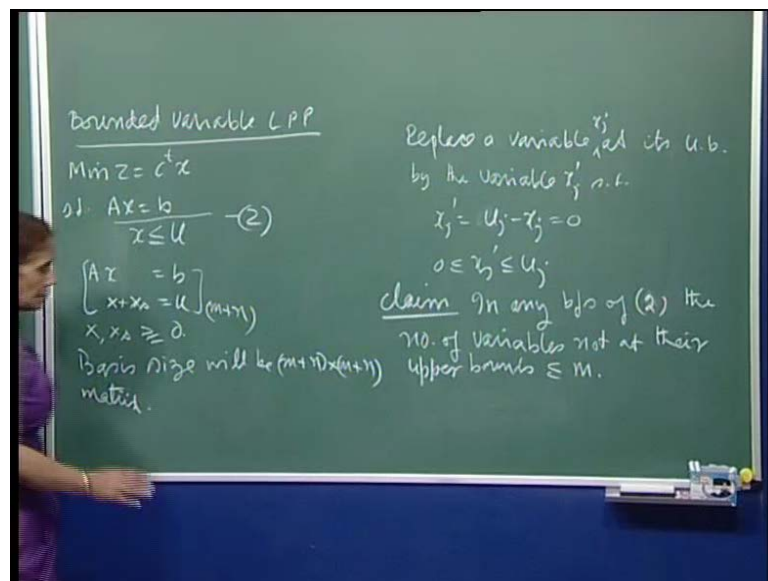 Bounded variable LPP
Min Z = cᵗx
st. Ax = b
x ≤ u —(2)
[Ax = b
x + xₛ = u] (m+n)
x, xₛ ≥ 0.
Basis size will be (m+n)x(m+n)
matrix.
Replace a variable xⱼ at its u.b.
by the variable xⱼ' s.t.
xⱼ' = uⱼ - xⱼ = 0
0 ≤ xⱼ' ≤ uⱼ
claim In any bfs of (2) the
no. of variables not at their
upper bounds ≤ m.